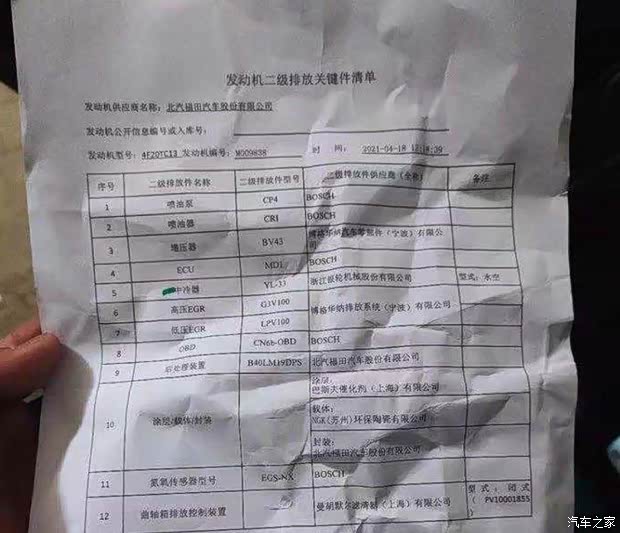 发动机二级排放关键件清单
发动机供应商名称：北汽福田汽车股份有限公司
发动机公开信息编号或入库号：
发动机型号：4F20TC13 发动机编号：M009838 时 间：2021-04-18
序号 二级排放件名称 二级排放件型号 二级排放件供应商（全称） 备注
1 喷油泵 CP4 BOSCH
2 喷油器 CRI BOSCH
3 增压器 BV43 博格华纳汽车零部件（宁波）有限公司
4 ECU MD1 BOSCH
5 中冷器 YL-33 浙江银轮机械股份有限公司 型式：水空
6 高压EGR GIV100 博格华纳排放系统（宁波）有限公司
7 低压EGR LPV100
8 OBD CN6b-OBD BOSCH
9 后处理装置 B40LM19DPS 北汽福田汽车股份有限公司
10 涂层/载体/封装 涂层：
巴斯夫催化剂（上海）有限公司
载体：
NGK(苏州)环保陶瓷有限公司
封装：
北汽福田汽车股份有限公司
11 氮氧传感器型号 EGS-NX BOSCH
12 曲轴箱排放控制装置 曼胡默尔滤清器（上海）有限公司 型式：闭式
（PV10001855
）
汽车之家